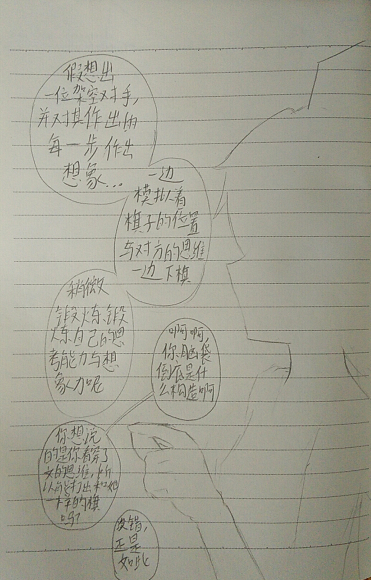 假想出
一位架空对手,
并对其作出的
每一步作出
想象...
一边
模拟着
棋子的位置
与对方的思维
一边下棋
稍微
锻炼锻
炼自己的思
考能力与想
象力呢
啊啊,
你脑袋
到底是什
么构造啊
你想说
的是你看穿了
的思维,所
以能打出和他
一样的棋
吗?
没错,
正是
如此